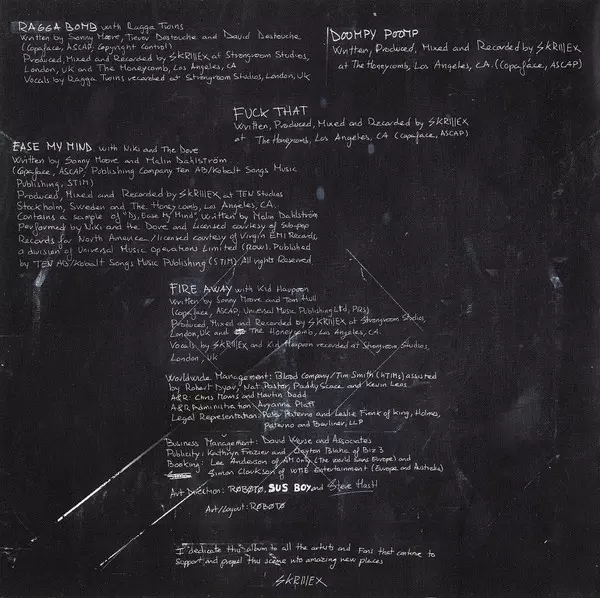 RAGGA BOMB with Ragga Twins
Written by Sonny Moore, Trevor Destouche and David Destouche
(Copaface, ASCAP, Copyright Control)
Produced, Mixed and Recorded by SKRILLEX at Strongroom Studios,
London, UK and The Honeycomb, Los Angeles, CA
Vocals by Ragga Twins recorded at Strongroom Studios, London, UK
DOOMPY POOMP
Written, Produced, Mixed and Recorded by SKRILLEX
at The Honeycomb, Los Angeles, CA. (Copaface, ASCAP)
FUCK THAT
Written, Produced, Mixed and Recorded by SKRILLEX
at The Honeycomb, Los Angeles, CA (Copaface, ASCAP)
EASE MY MIND with Niki and The Dove
Written by Sonny Moore and Malin Dahlström
(Copaface, ASCAP, Publishing Company Ten AB/Kobalt Songs Music
Publishing, STIM)
Produced, Mixed and Recorded by SKRILLEX at TEN Studios
Stockholm, Sweden and The Honeycomb, Los Angeles, CA.
Contains a sample of "DJ, Ease My Mind", Written by Malin Dahlström
Performed by Niki and the Dove and Licensed courtesy of Sub-pop
Records for North America / licensed courtesy of Virgin EMI Records,
a division of Universal Music Operations Limited (Row). Published
by TEN AB/Kobalt Songs Music Publishing (STIM) All rights Reserved
FIRE AWAY with Kid Harpoon
Written by Sonny Moore and Tom Hull
(Copaface, ASCAP, Universal Music Publishing Ltd, PRS)
Produced, Mixed and Recorded by SKRILLEX at Strongroom Studios,
London, UK and The Honeycomb, Los Angeles, CA.
Vocals by SKRILLEX and Kid Harpoon recorded at Strongroom Studios,
London, UK
Worldwide Management: Blood Company/Tim Smith (hTIMs) assisted
by Robert Dyar, Nat Pastor, Paddy Scace and Kevin Leas
A&R: Chris Morris and Martin Dodd
A&R Administration: Aryanna Platt
Legal Representation: Peter Paterno and Leslie Frank of King, Holmes,
Paterno and Berliner, LLP
Business Management: David Weise and Associates
Publicity: Kathryn Frazier and Clayton Blaha of Biz 3
Booking: Lee Anderson of AM Only (The world sans Europe) and
Simon Clarkson of WME Entertainment (Europe and Australia)
Art Direction: RØBØTØ, SUS BOY and Steve Hash
Art/Layout: RØBØTØ
I dedicate this album to all the artists and fans that continue to
support and propel this scene into amazing new places
SKRILLEX